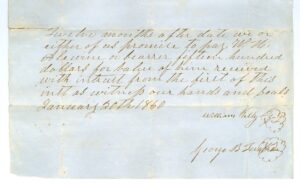 Twelve months after date we or
either of us promise to pay W. H.
or bearer fifteen hundred
dollars for value of him received
with interest from the first of this
inst as witness our hands and seals
January 20th 1860
William
George B.